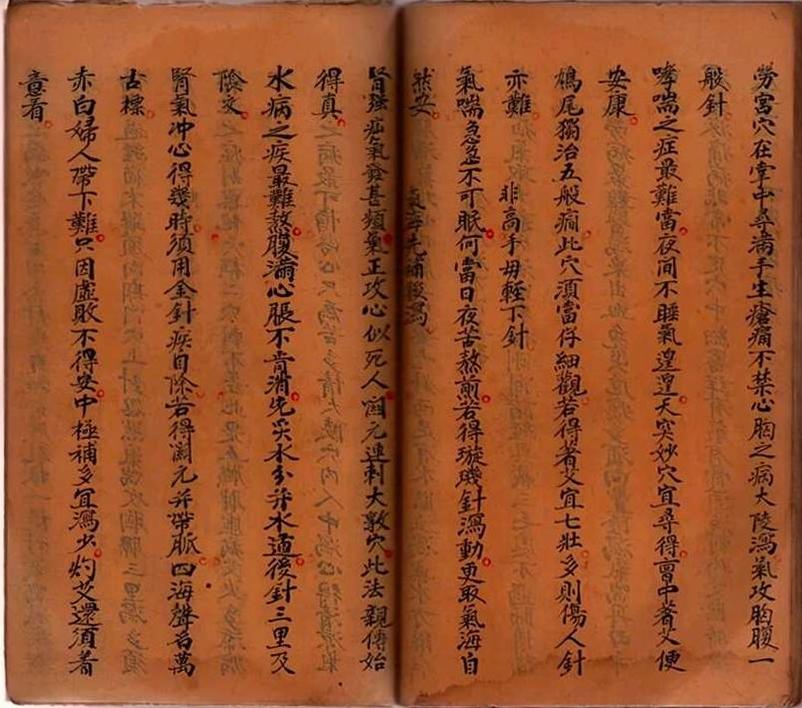 勞宮穴在掌中尋滿手生瘡痛不禁心胸之病大陵瀉氣攻胸腹一
般針
哮喘之症最難當夜间不睡氣遑遑天突妙穴宜尋得亶中著艾便
安康
鳩尾獨治五般癎此穴須當仔細觀若得著艾宜七壯多則傷人針
亦難 非高手毋輕下針
氣喘急急不可眠何當日夜苦熬煎若得璇璣針瀉動更取氣海自
然安 氣海先補後瀉
腎强疝氣發甚頻氣正攻心似死人関元連刺大敦穴此法親傳始
得真
水病之疾最難熬腹滿心脹不肯消先灸水分并水道後針三里及
陰交
腎氣冲心得幾時須用金針疾自除若得関元并帶脈四海聲名萬
古標
赤白婦人帶下難只因虛敗不得安中極補多宜瀉少灼艾還須着
意看